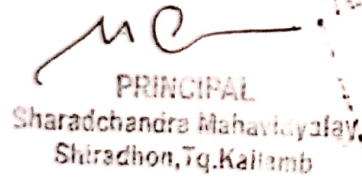 PRINCIPAL
Sharadchandra Mahavidyalay,
Shiradhon, Tq. Kallamb